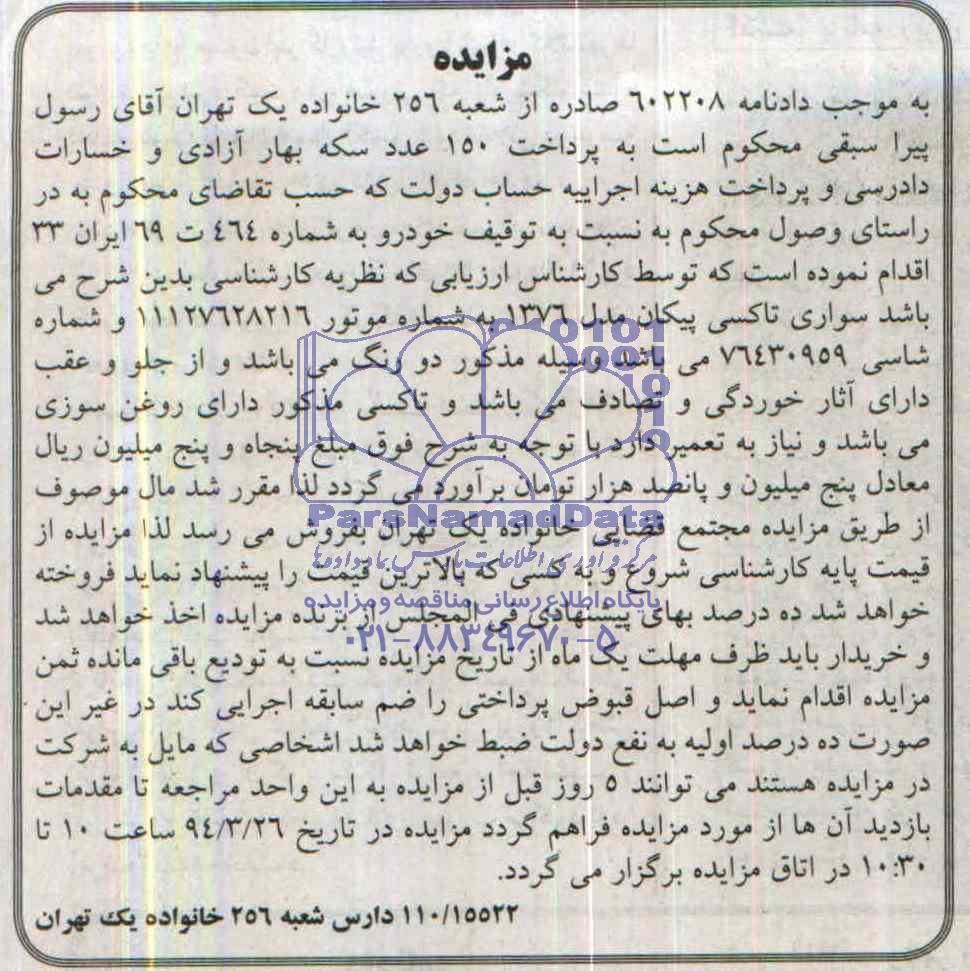 مزایده
به موجب دادنامه ٦٠٢٢٠٨ صادره از شعبه ٢٥٦ خانواده یک تهران آقای رسول
پیرا سبقی محکوم است به پرداخت ١٥٠ عدد سکه بهار آزادی و خسارات
دادرسی و پرداخت هزینه اجراییه حساب دولت که حسب تقاضای محکوم به در
راستای وصول محکوم به نسبت به توقیف خودرو به شماره ٤٦٤ ت ٦٩ ایران ٣٣
اقدام نموده است که توسط کارشناس ارزیابی که نظریه کارشناسی بدین شرح می
باشد سواری تاکسی پیکان مدل ١٣٧٦ به شماره موتور ١١١٢٧٦٢٨٢١٦ و شماره
شاسی ٧٦٤٣٠٩٥٩ می باشد وسیله مذکور دو رنگ می باشد و از جلو و عقب
دارای آثار خوردگی و تصادف می باشد و تاکسی مذکور دارای روغن سوزی
می باشد و نیاز به تعمیر دارد با توجه به شرح فوق مبلغ پنجاه و پنج میلیون ریال
معادل پنج میلیون و پانصد هزار تومان برآورد می گردد لذا مقرر شد مال موصوف
ParsNamadData
از طریق مزایده مجتمع قضایی خانواده یک تهران بفروش می رسد لذا مزایده از
مرکز فرآوری اطلاعات پارس نماد داده ها
قیمت پایه کارشناسی شروع و به کسی که بالاترین قیمت را پیشنهاد نماید فروخته
پایگاه اطلاع رسانی مناقصه و مزایده
خواهد شد ده درصد بهای پیشنهادی فی المجلس از برنده مزایده اخذ خواهد شد
٠٢١-٨٨٣٤٩٦٧٠-٥
و خریدار باید ظرف مهلت یک ماه از تاریخ مزایده نسبت به تودیع باقی مانده ثمن
مزایده اقدام نماید و اصل قبوض پرداختی را ضم سابقه اجرایی کند در غیر این
صورت ده درصد اولیه به نفع دولت ضبط خواهد شد اشخاصی که مایل به شرکت
در مزایده هستند می توانند ٥ روز قبل از مزایده به این واحد مراجعه تا مقدمات
بازدید آن ها از مورد مزایده فراهم گردد مزایده در تاریخ ٩٤/٣/٢٦ ساعت ١٠ تا
١٠:٣٠ در اتاق مزایده برگزار می گردد.
١١٠/١٥٥٢٢ دارس شعبه ٢٥٦ خانواده یک تهران